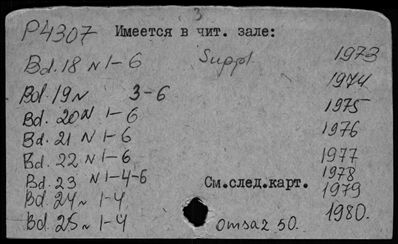 3
P4307 Имеется в чит. зале:
Bd. 18 N 1-6 Suppl. 1973
Bd. 19 N 3-6 1974
Bd. 20 N 1-6 1975
Bd. 21 N 1-6 1976
Bd. 22 N 1-6 1977
Bd. 23 N 1-4-6 1978
См.след.карт. 1979
Bd. 24 N 1-4
Bd. 25 N 1-4 отказ 50. 1980.